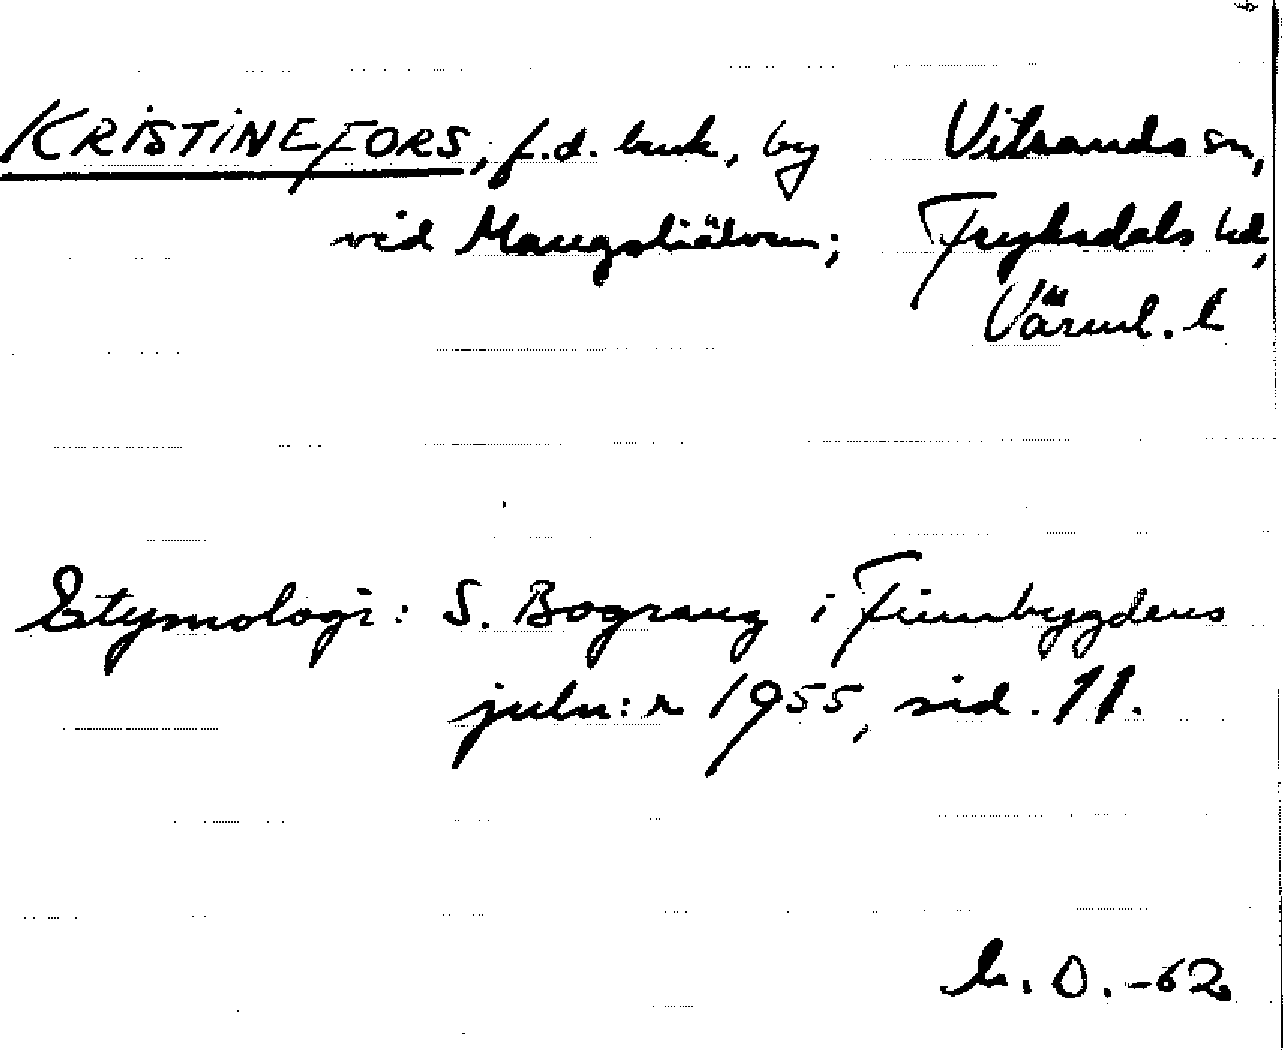 KRISTINEFORS, f.d. bruk, by
Vitsands sn,
vid Mangsliälven;
Fryksdals hd,
Värml. l
Etymologi: S. Bograng i Finnbygdens
juln:r 1955, sid. 11.
-62